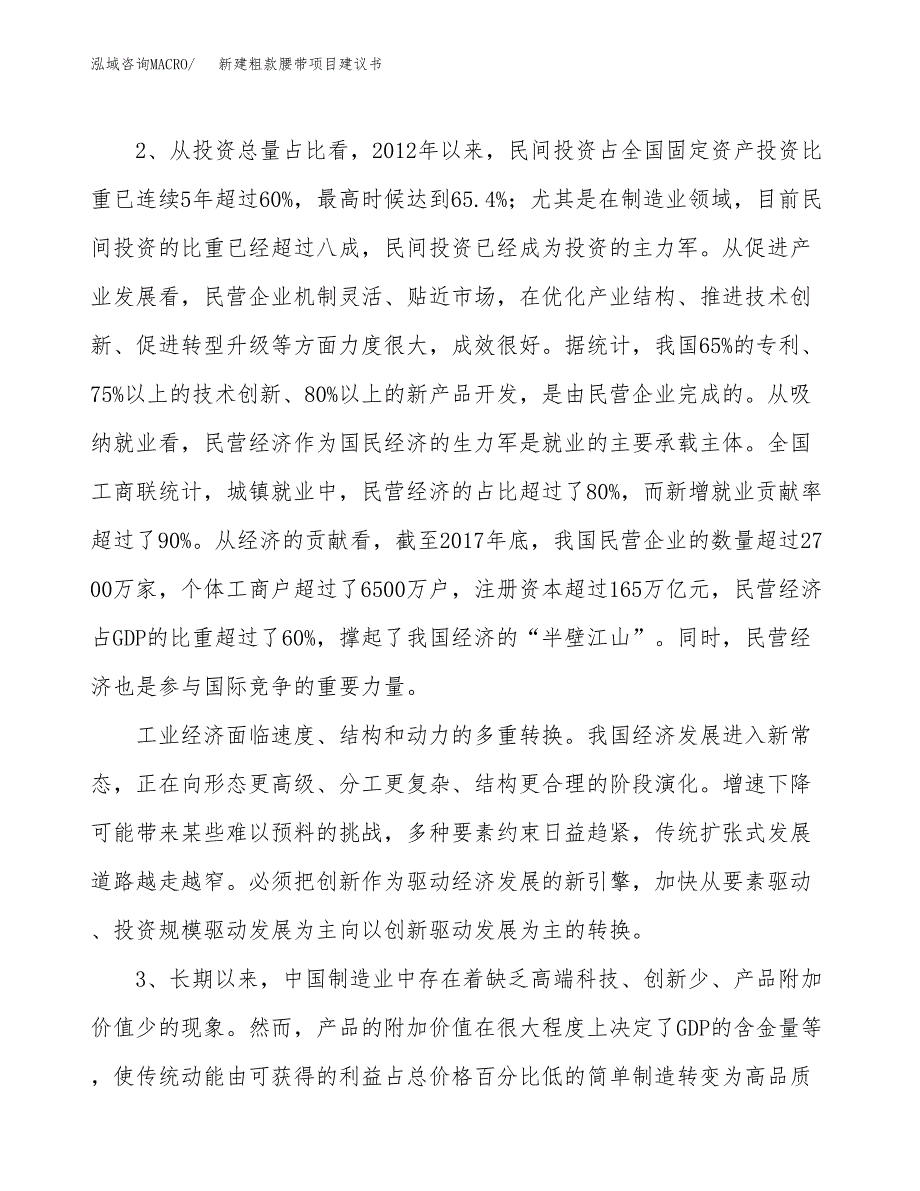 泓域咨询MACRO/ 新建粗款腰带项目建议书
2、从投资总量占比看，2012年以来，民间投资占全国固定资产投资比
重已连续5年超过60%，最高时候达到65.4%；尤其是在制造业领域，目前民
间投资的比重已经超过八成，民间投资已经成为投资的主力军。从促进产
业发展看，民营企业机制灵活、贴近市场，在优化产业结构、推进技术创
新、促进转型升级等方面力度很大，成效很好。据统计，我国65%的专利、
75%以上的技术创新、80%以上的新产品开发，是由民营企业完成的。从吸
纳就业看，民营经济作为国民经济的生力军是就业的主要承载主体。全国
工商联统计，城镇就业中，民营经济的占比超过了80%，而新增就业贡献率
超过了90%。从经济的贡献看，截至2017年底，我国民营企业的数量超过27
00万家，个体工商户超过了6500万户，注册资本超过165万亿元，民营经济
占GDP的比重超过了60%，撑起了我国经济的“半壁江山”。同时，民营经
济也是参与国际竞争的重要力量。
工业经济面临速度、结构和动力的多重转换。我国经济发展进入新常
态，正在向形态更高级、分工更复杂、结构更合理的阶段演化。增速下降
可能带来某些难以预料的挑战，多种要素约束日益趋紧，传统扩张式发展
道路越走越窄。必须把创新作为驱动经济发展的新引擎，加快从要素驱动
、投资规模驱动发展为主向以创新驱动发展为主的转换。
3、长期以来，中国制造业中存在着缺乏高端科技、创新少、产品附加
价值少的现象。然而，产品的附加价值在很大程度上决定了GDP的含金量等
，使传统动能由可获得的利益占总价格百分比低的简单制造转变为高品质